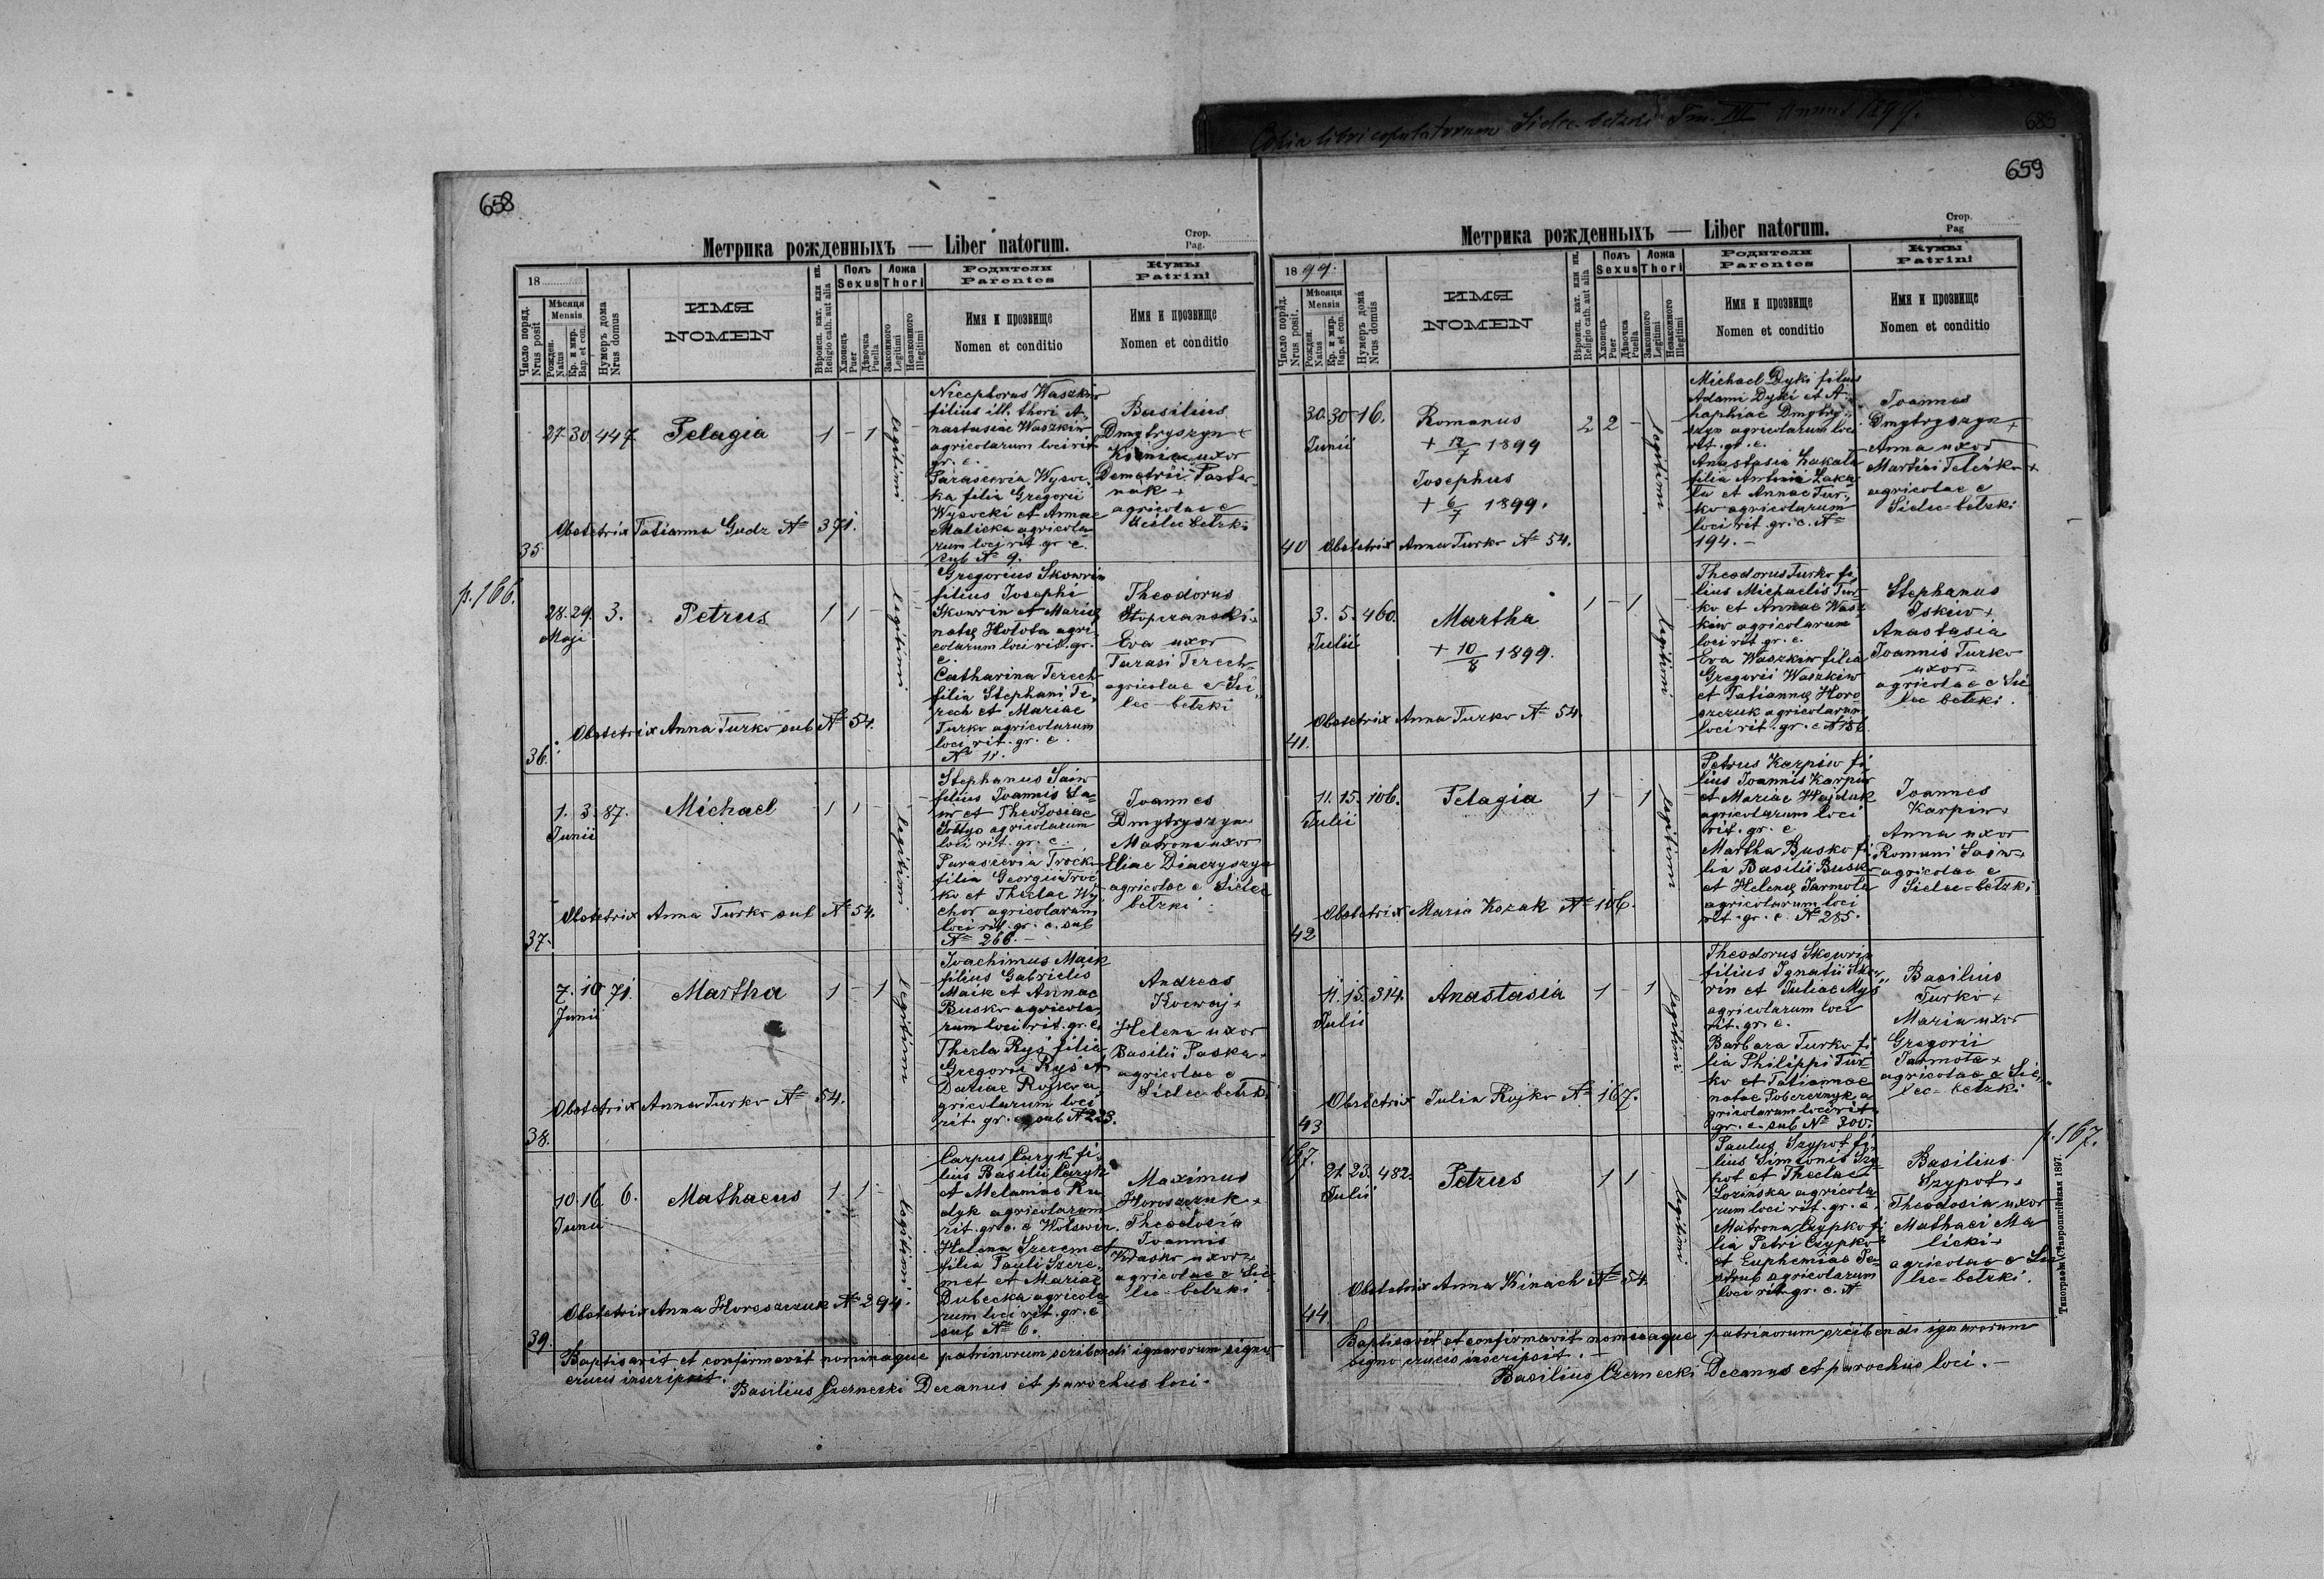 Copia libri copulatorum Sielec-bełzki Tm. III Annus 1899.
683
658
Стор.
Pag.
Метрика рожденныхъ — Liber natorum.
18
Число поряд.
Nrus posit
Мѣсяця
Mensis
Рожден.
Natus
Кр. и мир.
Bap. et con.
Нумеръ дома
Nrus domus
ИМЯ
NOMEN
Вѣроисп. кат. или ин.
Religio cath. aut alia
Полъ
Sexus
Хлопець
Puer
Дѣвочка
Puella
Ложа
Thori
Законного
Legitimi
Незаконного
Illegitimi
Родители
Parentes
Имя и прозвище
Nomen et conditio
Кумы
Patrini
Имя и прозвище
Nomen et conditio
35
27 30 447 Pelagia 1 - 1 legitimi
Obstetrix Tatianna Gudz № 371.
Nicephorus Waszkiw
filius ill. thori A-
nastasiae Waszkiw
agricolarum loci rit
gr. c.
Parascevia Wysoc-
ka filia Gregorii
Wysocki et Annae
Malicka agricola
rum loci rit. gr. c.
sub № 9.
Basilius
Dmytryszyn +
uxor
Demetrii Paster-
nak +
agricolae e
Sielec bełzki
p. 166.
36.
28. 29. 3. Petrus 1 1 - legitimi
Maji
Obstetrix Anna Turko sub № 54.
Gregorius Skowrin
filius Josephi
Skowrin et Mariae
natę Hołota agri-
colarum loci rit. gr.
c.
Catharina Terech
filia Stephani Te-
rech et Mariae
Turko agricolarum
loci rit. gr. c.
№ 11.
Theodorus
Stopczanski +
Eva uxor
Tarasi Terech
agricolae e Sie
lec-bełzki
37.
1. 3. 87. Michael 1 1 - legitimi
Junii
Obstetrix Anna Turko sub № 54.
Stephanus Saiw
filius Joannis Sa-
iw et Theodosiae
Sołtys agricolarum
loci rit. gr. c.
Parascevia Troćko
filia Georgii Troć
ko et Theclae Wy
chor agricolarum
loci rit. gr. c. sub
№ 266. -
Joannes
Dmytryszyn +
Matrona uxor
Eliae Diaczyszyn
agricolae e Sielec
bełzki
38.
7. 10 71. Martha 1 - 1 legitimi
Junii
Obstetrix Anna Turko № 54.
Joachimus Maik
filius Gabrielis
Maik et Annae
Busko agricola
rum loci rit. gr. c.
Thecla Ryś filia
Gregorii Ryś et
Dariae Rojko a
gricolarum loci
rit. gr. c. sub № 223.
Andreas
Kocwaj +
Helena uxor
Basilii Paska +
agricolae e
Sielec-bełzki
39.
10 16 6. Mathaeus 1 1 - legitimi
Junii
Obstetrix Anna Horoszczuk № 294.
Carpus Caryk fi-
lius Basilii Caryk
et Melaniae Ru
dyk agricolarum
rit. gr. c. e Wolswin.
Helena Szeremet
filia Pauli Szere-
met et Mariae
Dubecka agricola
rum loci rit. gr. c
sub № 6.
Maximus
Horoszczuk +
Theodosia
Joannis
Kwasko uxor +
agricolae e Sie
lec-bełzki
Baptisavit et confirmavit nominaque patrinorum scribendi ignarorum signo
crucis inscripsit.
Basilius Czernecki Decanus et parochus loci.
659
Стор.
Pag
Метрика рожденныхъ — Liber natorum.
1899.
Число поряд.
Nrus posit.
Мѣсяця
Mensis
Рожден.
Natus
Кр. и мир.
Bap. et con.
Нумеръ дома
Nrus domus
ИМЯ
NOMEN
Вѣроисп. кат. или ин.
Religio cath. aut alia
Полъ
Sexus
Хлопець
Puer
Дѣвочка
Puella
Ложа
Thori
Законного
Legitimi
Незаконного
Illegitimi
Родители
Parentes
Имя и прозвище
Nomen et conditio
Кумы
Patrini
Имя и прозвище
Nomen et conditio
40
30. 30 16. Romanus 2 2 - legitimi
Junii
+ 17/7 1899
Josephus
+ 6/7 1899.
Obstetrix Anna Turko № 54.
Michael Dyki filius
Adami Dyki et A-
haphiae Dmytry-
szyn agricolarum loci
rit. gr. c.
Anastasia Łakała
filia Antonii Łaka
ła et Annae Tur-
ko agricolarum
loci rit. gr. c. №
194. -
Joannes
Dmytryszyn +
Anna uxor
Martini Teleśko +
agricolae e
Sielec-bełzki
41.
3. 5. 460. Martha 1 - 1 legitimi
Julii
+ 10/8 1899.
Obstetrix Anna Turko № 54.
Theodorus Turko fi-
lius Michaelis Tur-
ko et Annae Wasz
kiw agricolarum
loci rit. gr. c.
Eva Waszkiw filia
Gregorii Waszkiw
et Tatiannę Horo
szczuk agricolarum
loci rit. gr. c № 136
Stephanus
Iskiw +
Anastasia
Joannis Turko
uxor +
agricolae e Sie
lec bełzki.
42
11. 15. 106. Pelagia 1 - 1 legitimi
Julii
Obstetrix Maria Kozak № 106.
Petrus Karpiw fi
lius Joannis Karpiw
et Mariae Hajduk
agricolarum loci
rit. gr. c
Martha Busko fi
lia Basilii Busko
et Helenę Jarmoła
agricolarum loci
rit. gr. c. № 285.
Joannes
Karpiw +
Anna uxor
Romani Saiw +
agricolae e
Sielec-bełzki
43
11. 15. 314. Anastasia 1 - 1 legitimi
Julii
Obstetrix Julia Rojko № 167.
Theodorus Skowrin
filius Ignatii Skow-
rin et Juliae Myś
agricolarum loci
rit. gr. c.
Barbara Turko fi
lia Philippi Tur-
ko et Tatiannae
natae Pobereżnyk a
gricolarum loci rit
gr. c. sub № 300.
Basilius
Turko +
Maria uxor
Gregorii
Jarmoła +
agricolae e Sie-
lec-bełzki
167.
p. 167.
44
21. 23. 482. Petrus 1 1 legitimi
Julii
Obstetrix Anna Kinach № 54.
Paulus Szypot fi-
lius Simeonis Szy
pot et Theclae
Łozińska agricola
rum loci rit. gr. c.
Matrona Czypko fi
lia Petri Czypko
et Euphemiae Pe-
strup agricolarum
loci rit. gr. c. №
Basilius
Szypot +
Theodosia uxor
Mathaei Ma
licki +
agricolae e Sie
lec-bełzki.
Baptisavit et confirmavit nominaque patrinorum scribendi ignarorum
signo crucis inscripsit. -
Basilius Czernecki Decanus et parochus loci. -
Типографія Ставропигійская 1897.